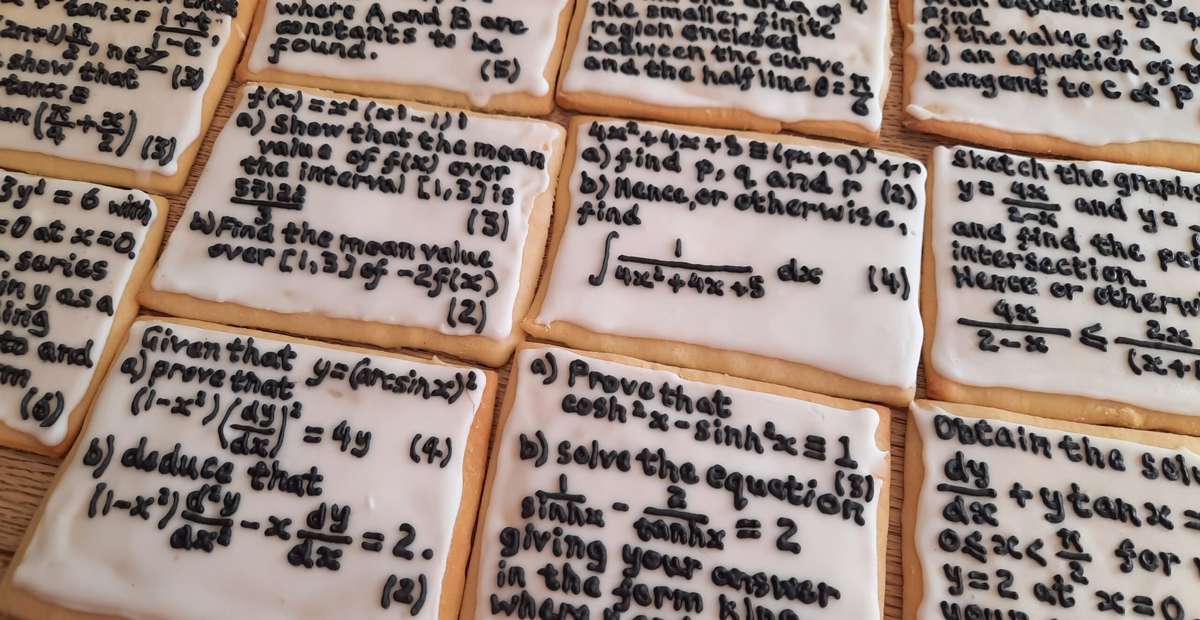 tan x = 1+t
1-t
(2n+1)π/2, n∈ℤ
show that (3)
tanx =
(π/4 + x/2) (3)
where A and B are
constants to be
found.
(5)
the smaller finite
region enclosed
between the curve
and the half line θ = π/6
find
a) the value of a
b) an equation of
tangent to C at P
3y² = 6 with
=0 at x=0.
series
in y as a
to and
(6)
a) Show that the mean
value of f(x) over
the interval [1,3] is
(3)
b) Find the mean value
over [1,3] of -2f(x)
(2)
4x²+4x+5≡(px+q)²+r
a) find p, q and r (2)
b) Hence, or otherwise,
find
∫ 1/(4x²+4x+5) dx (4)
Sketch the graphs
y = 4x/(2-x) and y =
and find the
intersection.
Hence or
4x/(2-x) ≤ 2x
(x+
Given that y=(arcsinx)²
a) prove that
(1-x²)(dy/dx)² = 4y (4)
b) deduce that
(1-x²) d²y/dx² - x dy/dx = 2.
(2)
a) Prove that
cosh²x-sinh²x≡1
(3)
b) solve the equation
1/sinhx - 2/tanhx = 2
giving your answer
in the form klna
where
Obtain the
dy/dx + ytanx =
0≤x<π/2 for
y=2 at x=0
your